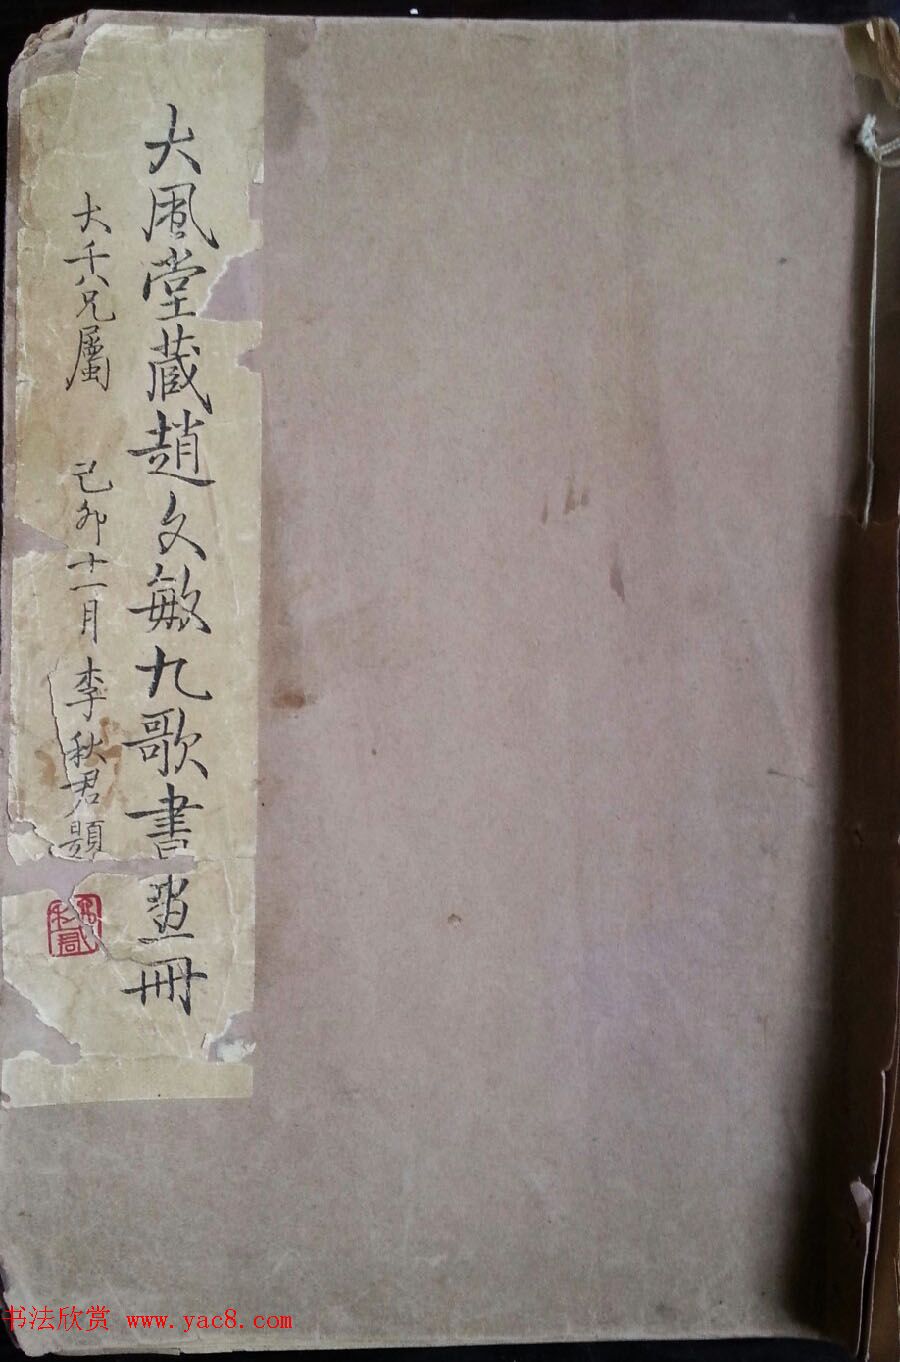 大風堂藏趙文敏九歌書畫冊
大千八兄屬 己卯十一月李秋君題
书法欣赏 www.yac8.com